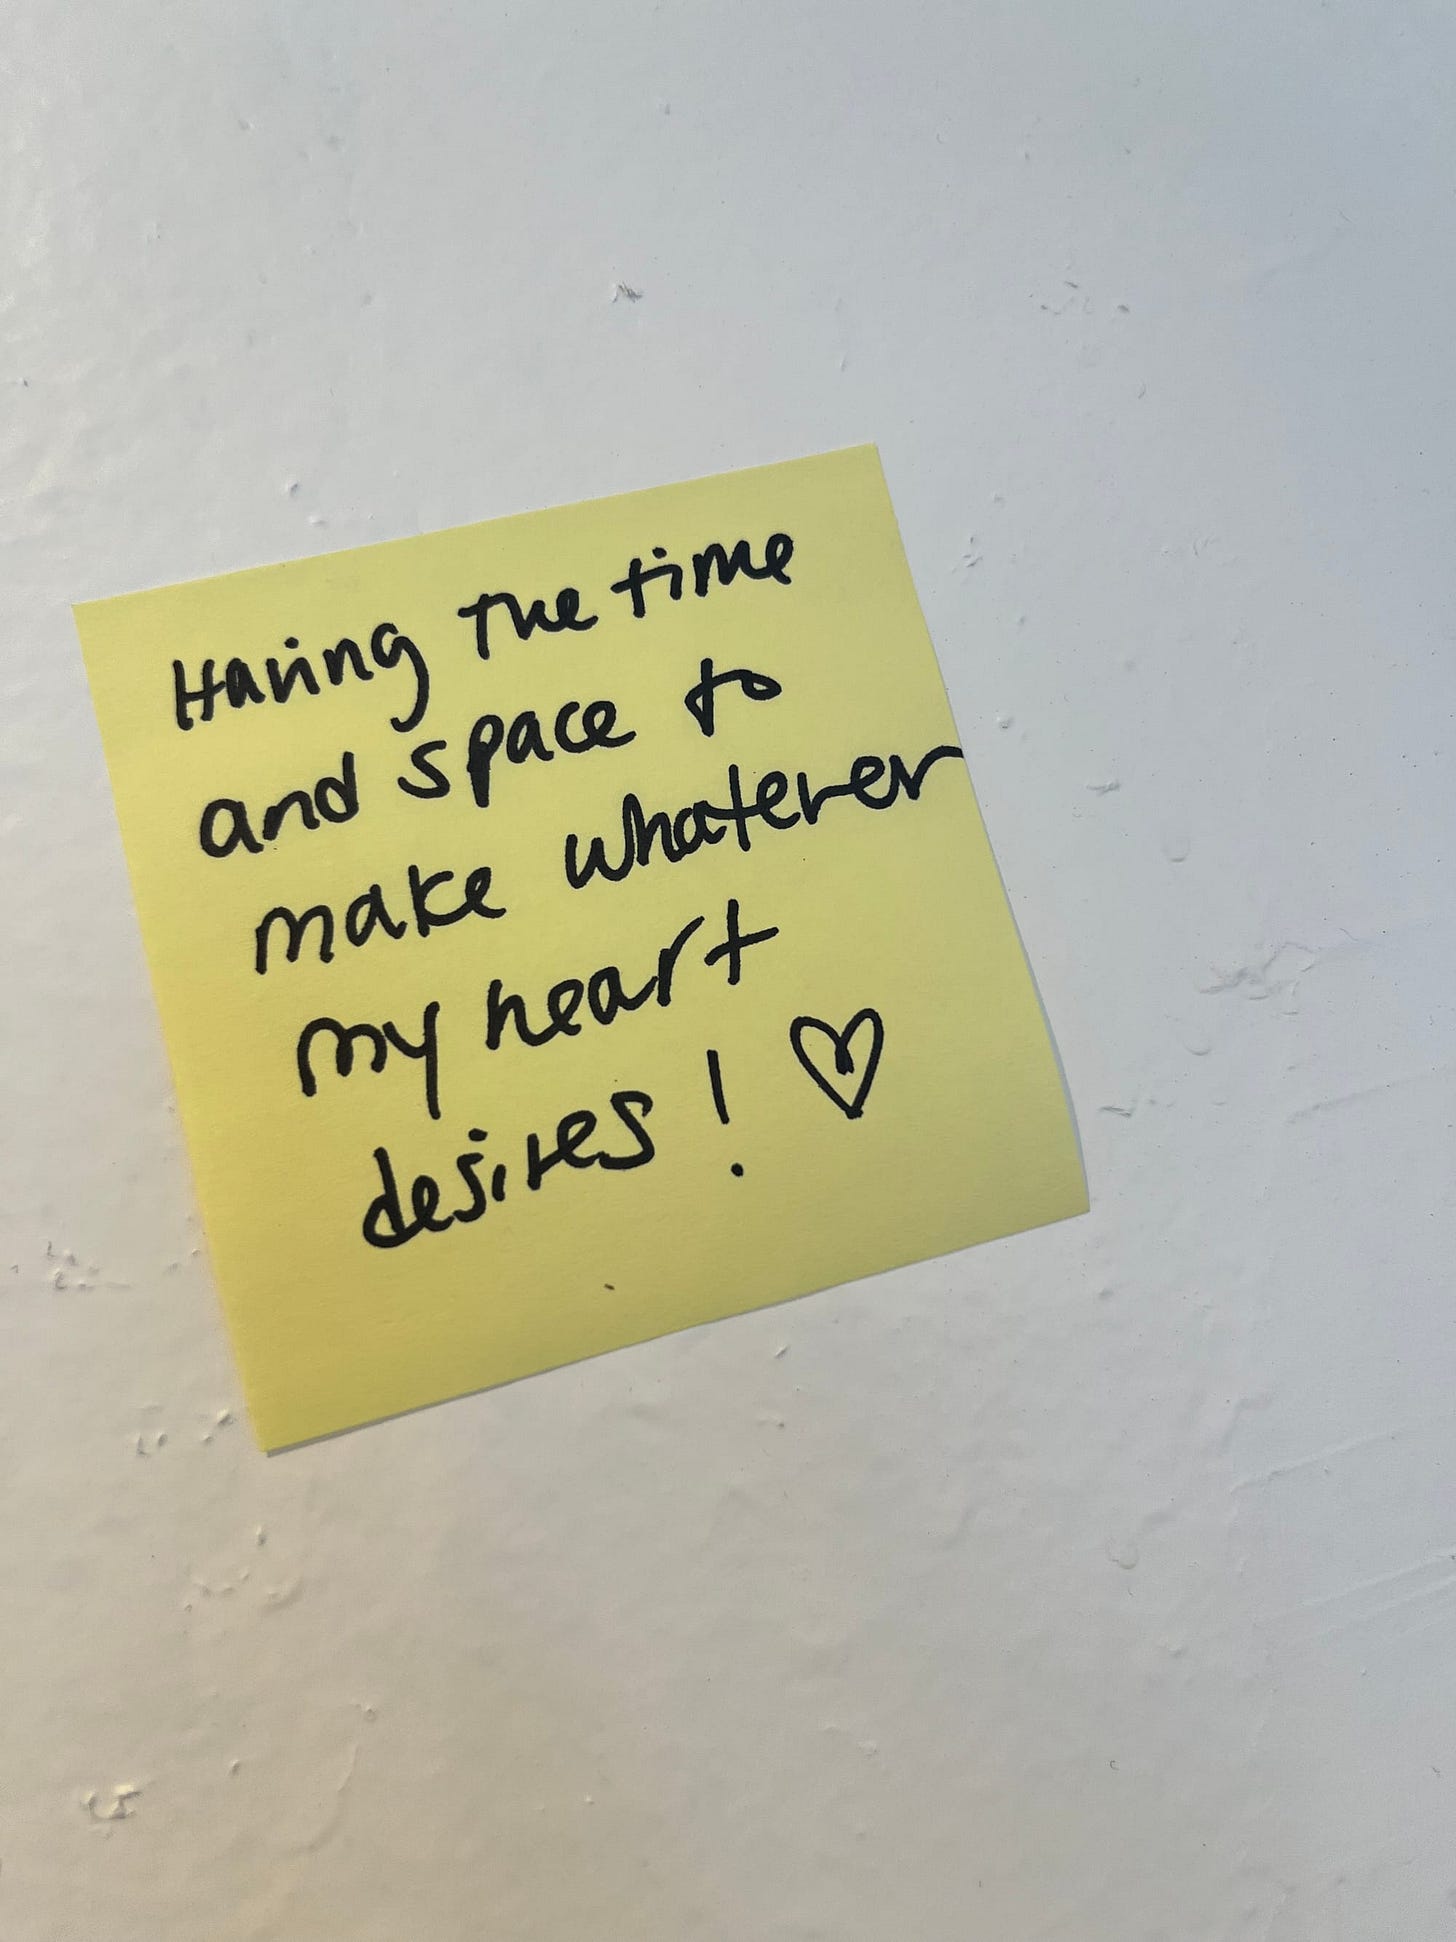 Having the time
and space to
make whatever
my heart
desires! ♡